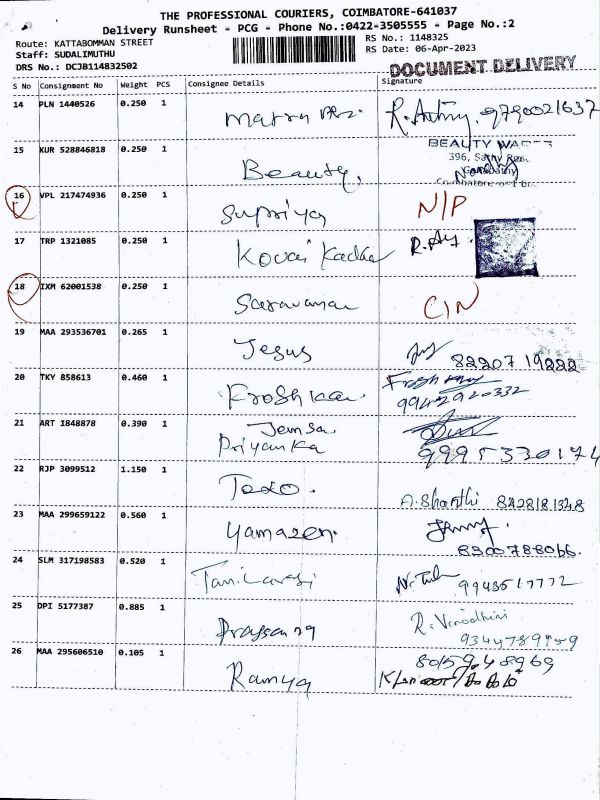 THE PROFESSIONAL COURIERS, COIMBATORE-641037
Delivery Runsheet - PCG - Phone No.:0422-3505555 - Page No.:2
Route: KATTABOMMAN STREET
Staff: SUDALIMUTHU
DRS No.: DCJB114832502
RS No.: 1148325
RS Date: 06-Apr-2023
DOCUMENT DELIVERY
S No Consignment No Weight PCS Consignee Details Signature
14 PLN 1440526 0.250 1
9790021637
15 KUR 528846818 0.250 1 Beauty.
BEAUTY
396,
16 VPL 217474936 0.250 1 Supriya N/P
17 TRP 1321085 0.250 1 Kovai Kadhai
18 IXM 62001538 0.250 1 Saravanan C/N
19 MAA 293536701 0.265 1 Jesus
8220719222
20 TKY 858613 0.460 1 Froshkar
9942920332
21 ART 1848878 0.390 1 Jemsa
Priyanka
9995330174
22 RJP 3099512 1.150 1
A. Shanthi 8428181348
23 MAA 299659122 0.560 1 Yamazen.
8300788066.
24 SLM 317198583 0.520 1 Tamilarasi
9943517772
25 DPI 5177387 0.885 1
R. Vinodhini
26 MAA 295606510 0.105 1 Ramya
8015948969